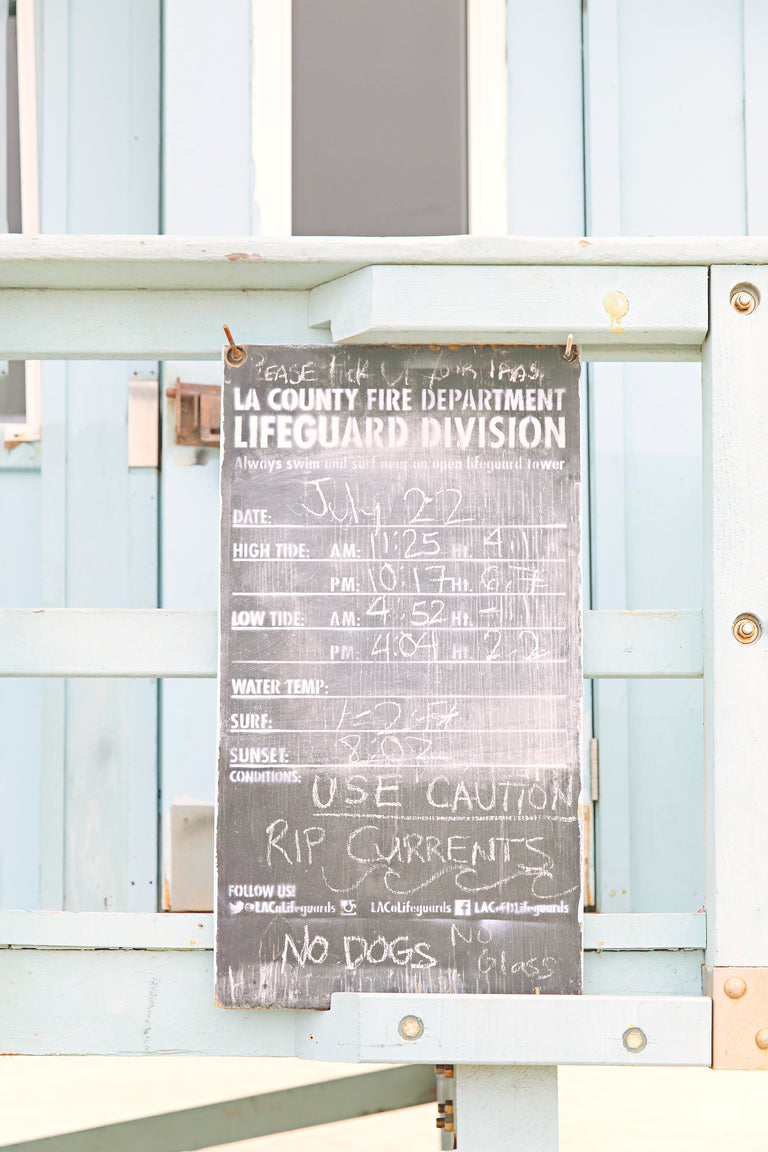 PLEASE PICK UP YOUR TRASH
LA COUNTY FIRE DEPARTMENT
LIFEGUARD DIVISION
Always swim and surf near an open lifeguard tower
DATE: July 22
HIGH TIDE: AM: 11:25 Ht. 4.1
PM: 10:17 Ht. 6.7
LOW TIDE: AM: 4:52 Ht. -
PM: 4:04 Ht. 2.2
WATER TEMP:
SURF: 1-2 Ft
SUNSET: 8:02
CONDITIONS:
USE CAUTION
RIP CURRENTS
FOLLOW US!
@LACoLifeguards LACoLifeguards LACoFDLifeguards
NO DOGS NO
Glass